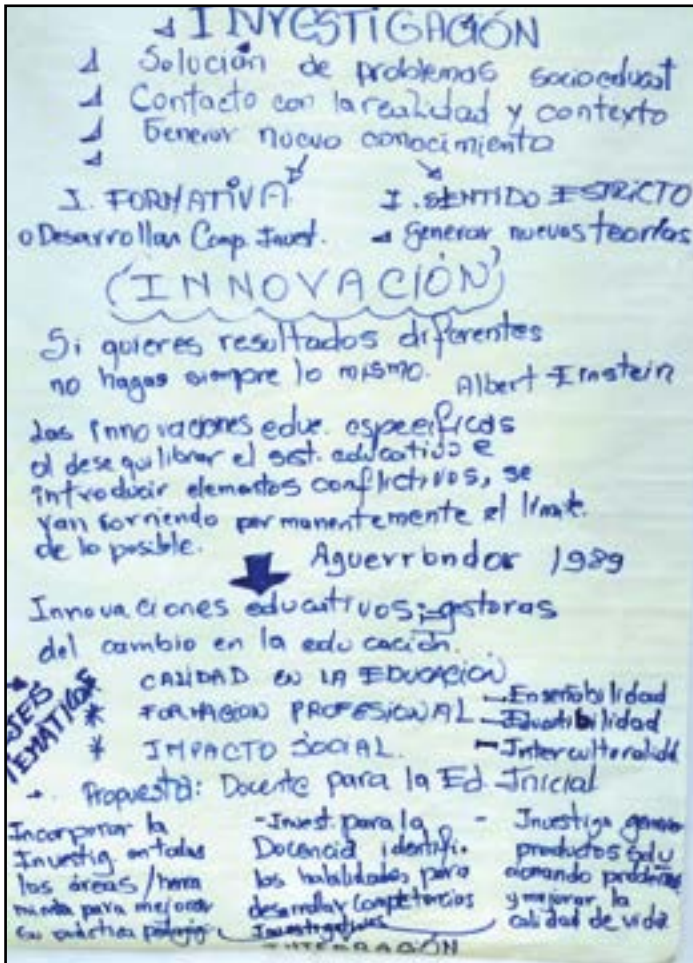 INVESTIGACIÓN
Solución de problemas socioeducat
Contacto con la realidad y contexto
Generar nuevo conocimiento
I. FORMATIVA
o Desarrollan Comp. Invest.
I. SENTIDO ESTRICTO
Generar nuevas teorías
(INNOVACIÓN)
Si quieres resultados diferentes
no hagas siempre lo mismo. Albert Einstein
Las innovaciones educ. específicas
al desequilibrar el sist. educativo e
introducir elementos conflictivos, se
van corriendo permanentemente el límite
de lo posible.
Aguerrondor 1989
Innovaciones educativos; gestoras
del cambio en la educación.
EJES TEMATICOS
* CALIDAD EN LA EDUCACIÓN
* FORMACION PROFESIONAL
* IMPACTO SOCIAL.
- Enseñabilidad
- Educabilidad
- Interculturalidd
Propuesta: Docente para la Ed. Inicial
Incorporar la
Investig. en todas
las áreas /herra
mienta para mejorar
su práctica pedagog
- Invest. para la
Docencia identifi.
las habilidades para
desarrollar Competencias
Investigativas
- Investiga genera
productos solu
cionando problemas
y mejorar la
calidad de vida
INTEGRACIÓN